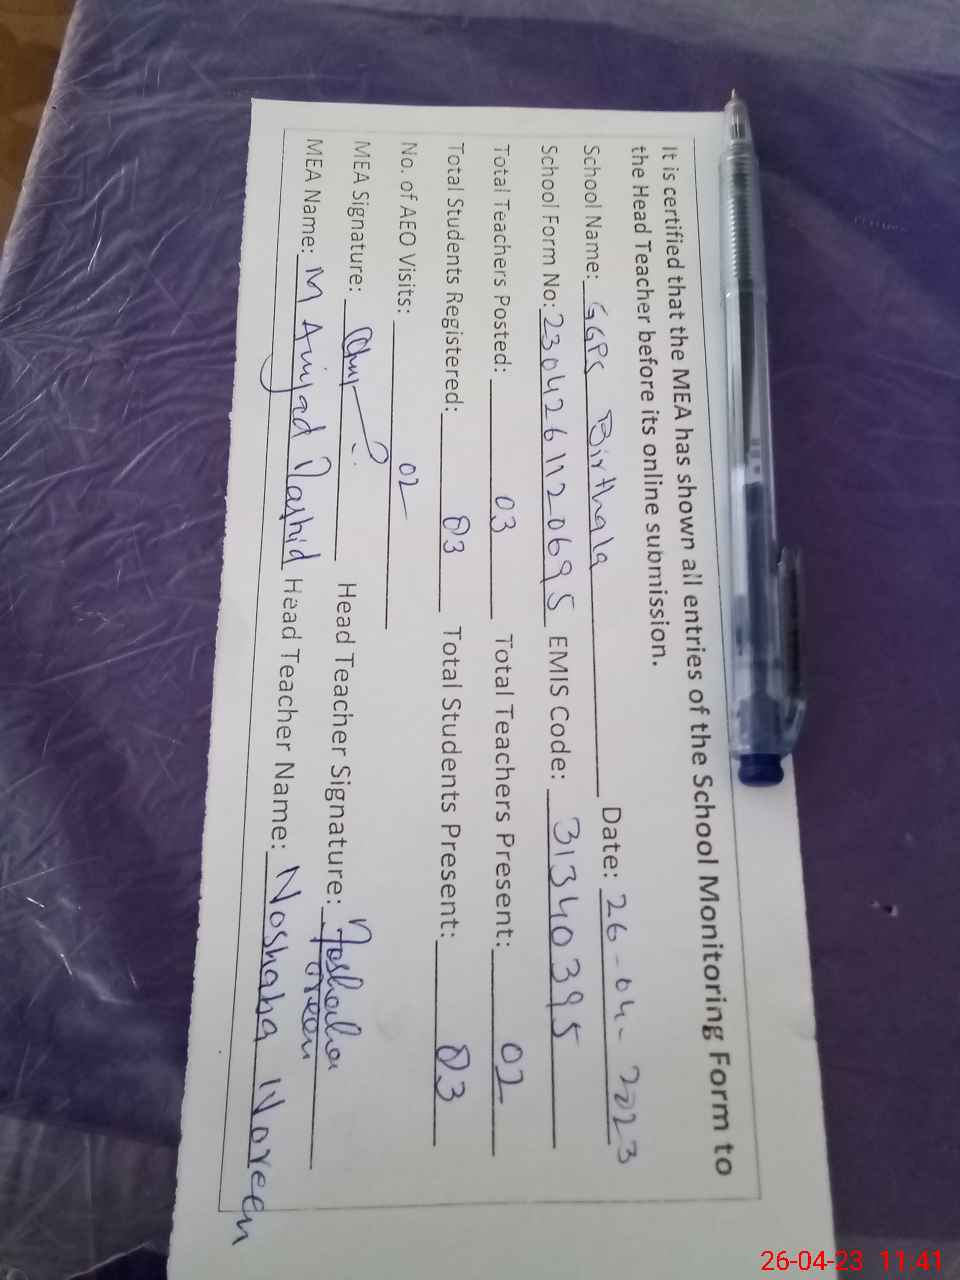 It is certified that the MEA has shown all entries of the School Monitoring Form to
the Head Teacher before its online submission.
School Name: GGPS Birthala Date: 26-04-2023
School Form No: 2304261120695 EMIS Code: 31340395
Total Teachers Posted: 03 Total Teachers Present: 02
Total Students Registered: 83 Total Students Present: 83
No. of AEO Visits: 02
MEA Signature: Head Teacher Signature: Noshaba
Noreen
MEA Name: M Amjad Rashid Head Teacher Name: Noshaba Noreen
26-04-23 11:41